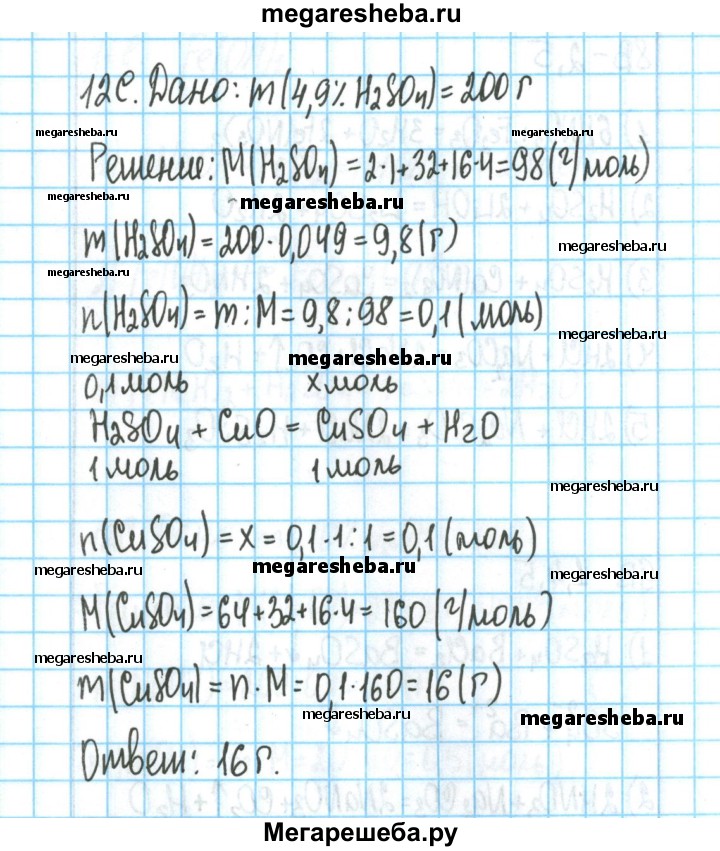 megaresheba.ru
12С. Дано: m(4,9% H2SO4) = 200 г
megaresheba.ru megaresheba.ru
Решение: M(H2SO4) = 2·1+32+16·4=98(г/моль)
megaresheba.ru megaresheba.ru
m(H2SO4) = 200·0,049 = 9,8(г)
megaresheba.ru
megaresheba.ru
n(H2SO4) = m : M = 9,8 : 98 = 0,1( моль)
megaresheba.ru
megaresheba.ru megaresheba.ru
0,1 моль х моль
H2SO4 + CuO = CuSO4 + H2O
1 моль 1 моль
megaresheba.ru
n(CuSO4) = x = 0,1·1:1 = 0,1 (моль)
megaresheba.ru megaresheba.ru megaresheba.ru
M(CuSO4) = 64+32+16·4 = 160 (г/моль)
megaresheba.ru
m(CuSO4) = n · M = 0,1·160 = 16(г)
megaresheba.ru megaresheba.ru
Ответ: 16 г.
Мегарешеба.ру